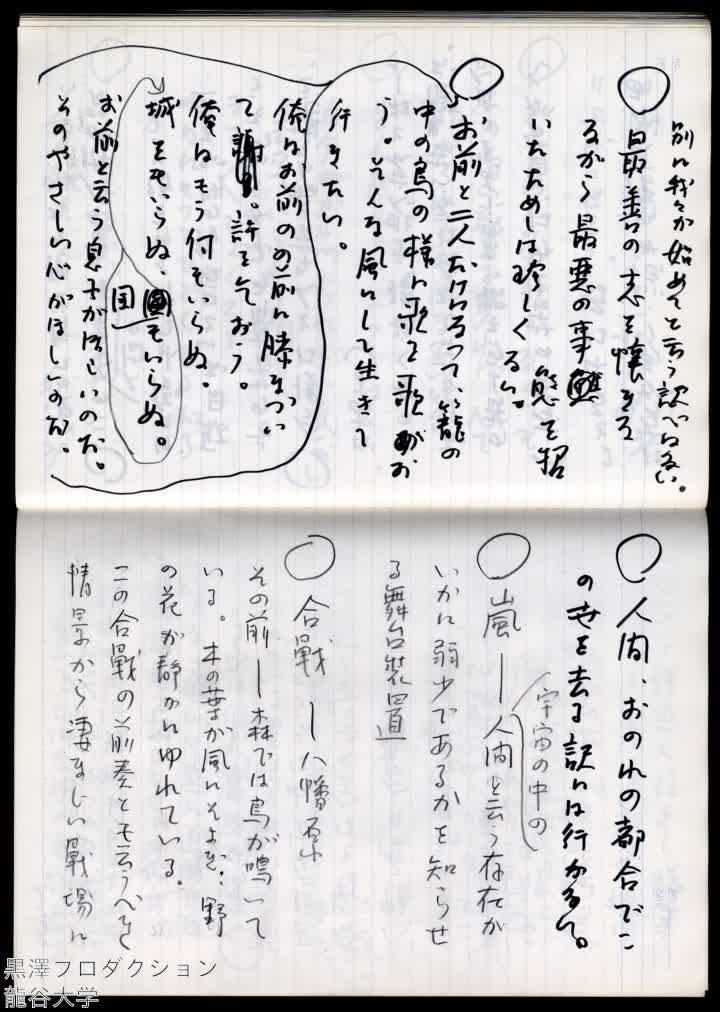 別に我々が始めてと云う訳ではない。
○最善の志を懐きな
がら最悪の事態を招
いたためしは珍しくない。
○お前と二人だけになって、籠の
中の鳥の様に歌を歌お
う。そんな風にして生きて
行きたい。
俺はお前のの前に膝まづい
て謝る。許を乞おう。
俺はもう何もいらぬ。
城もいらぬ、国もいらぬ。
国
お前と云う息子がほしいのだ。
そのやさしい心がほしいのだ。
○人間、おのれの都合でこ
の世を去る訳には行かない。
宇宙の中の
○嵐―人間と云う存在が
いかに弱少であるかを知らせ
る舞台装置
○合戦―八幡原
その前―森では鳥が鳴いて
いる。木の葉が風にそよぎ、野
の花が静かにゆれている。
この合戦の前奏とも云うべき
情景から凄まじい戦場に
黒澤プロダクション
龍谷大学